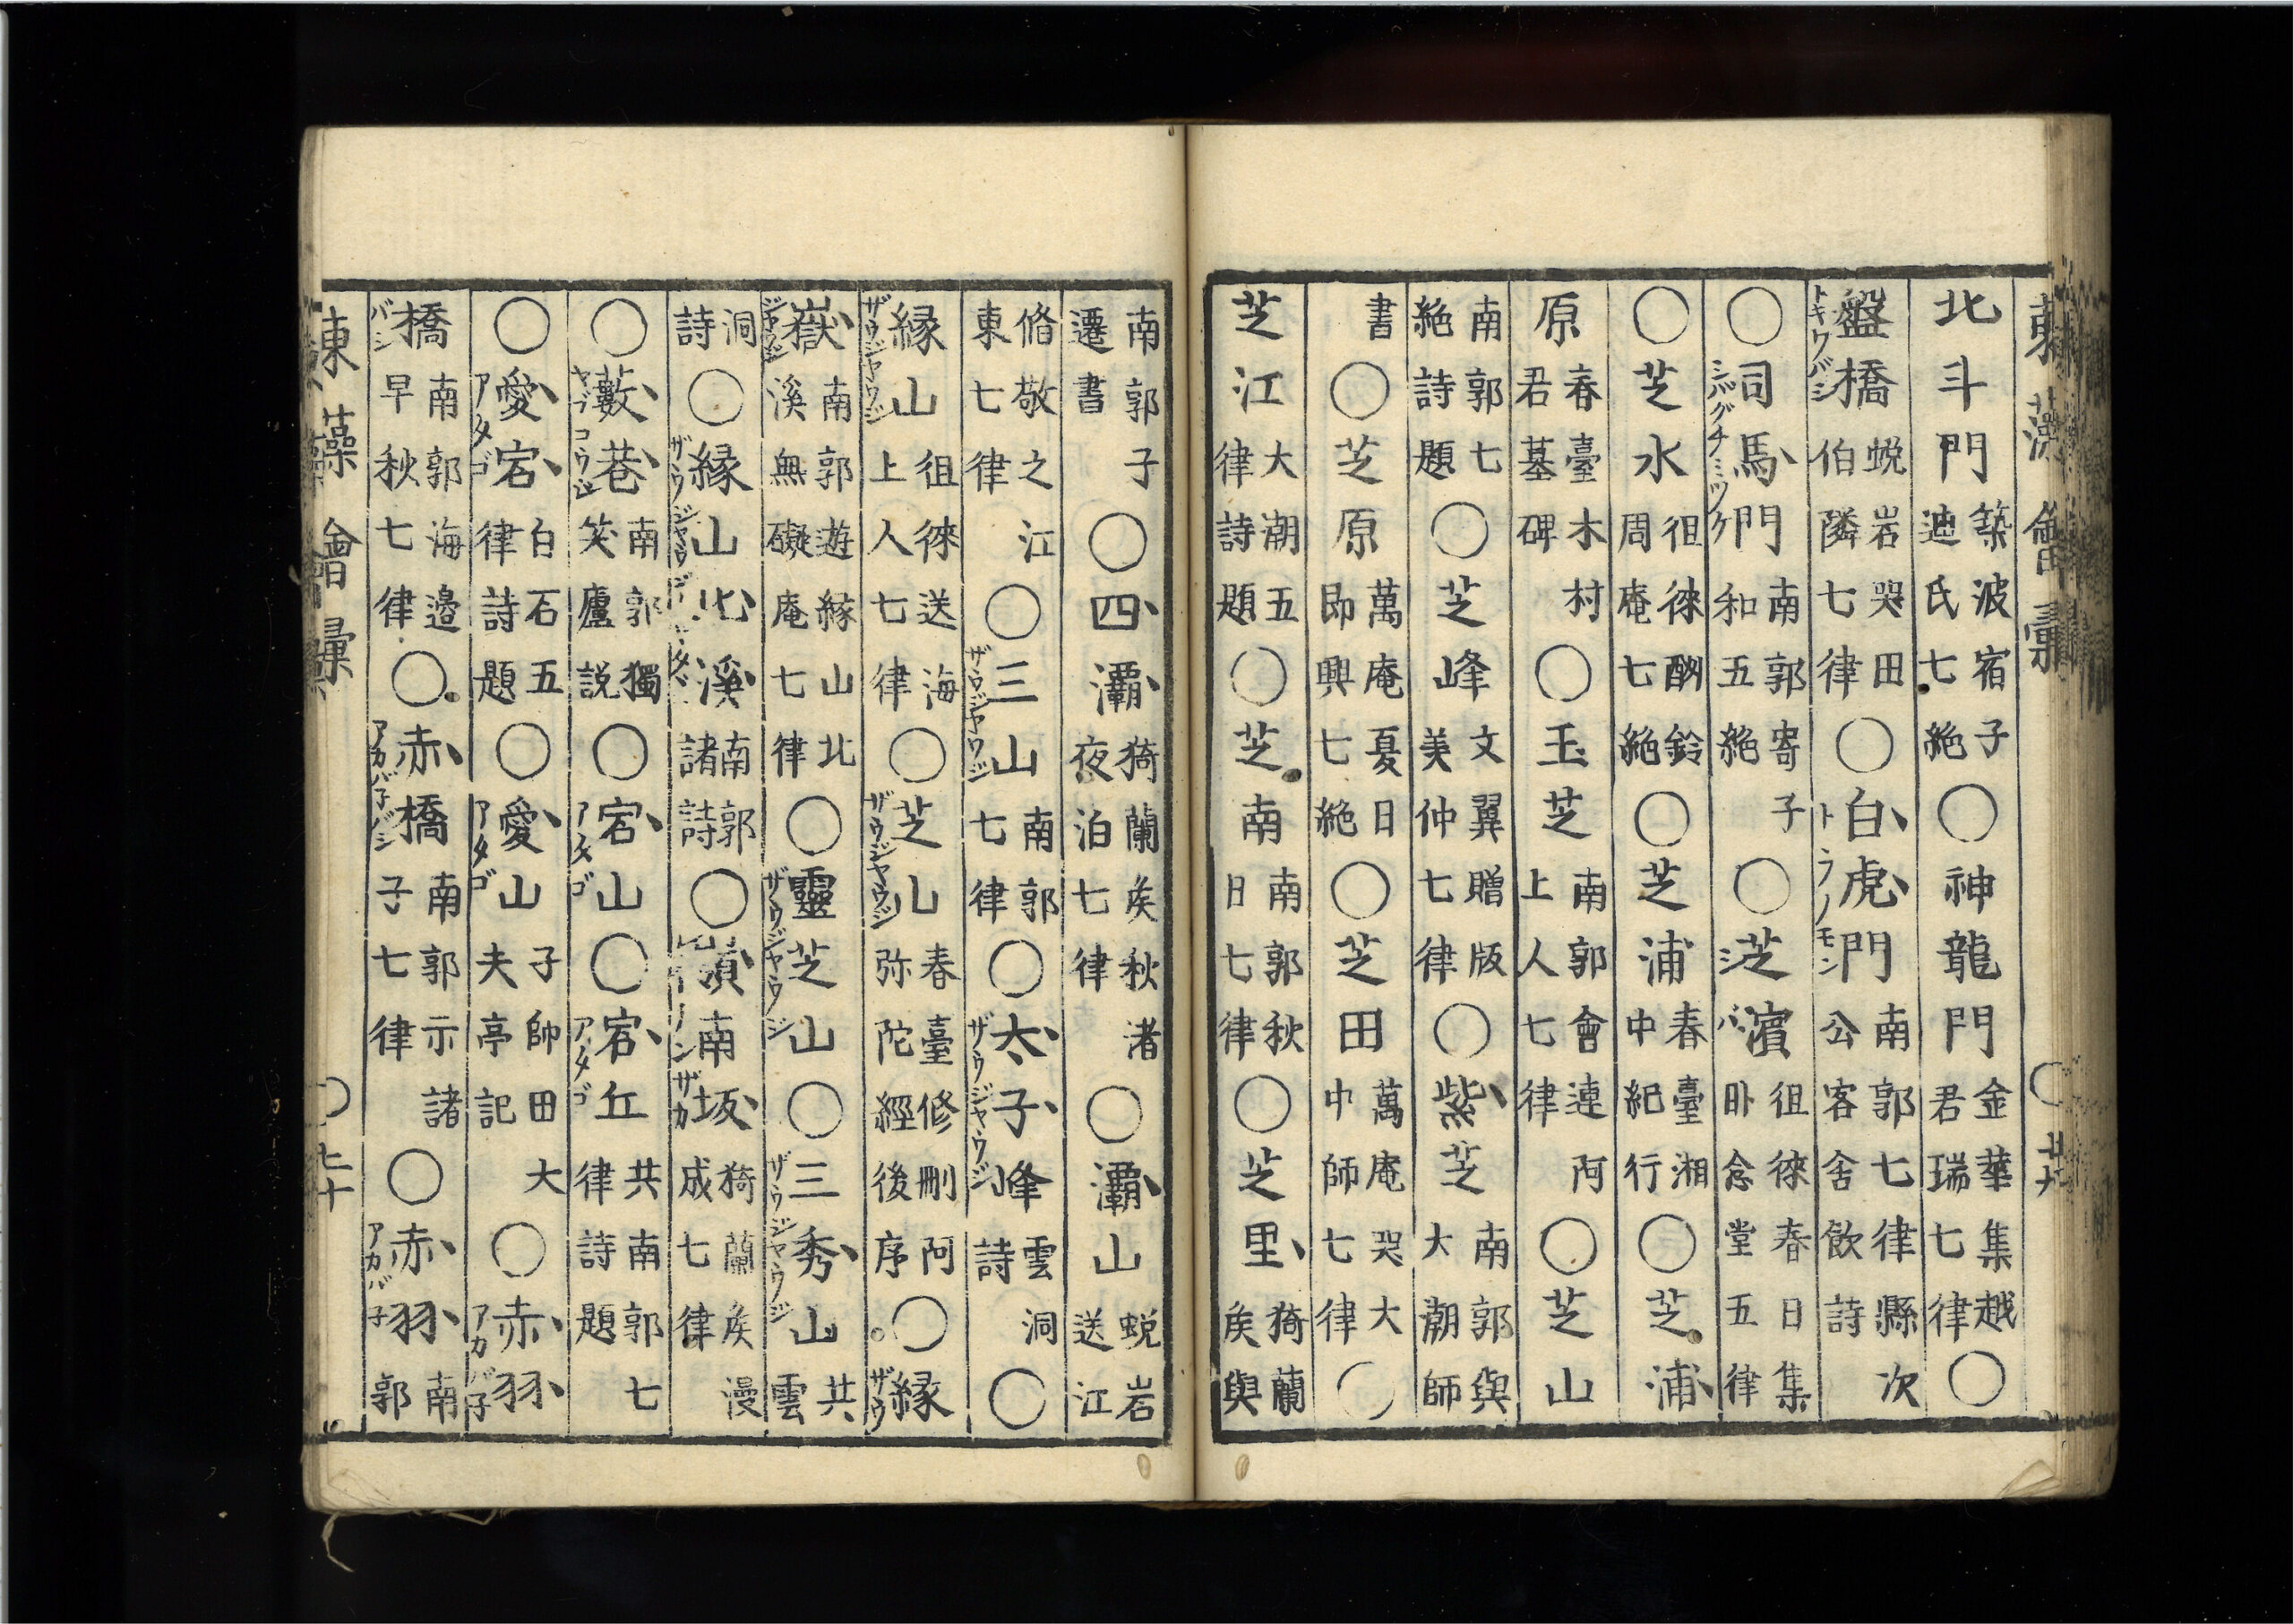 北斗門築波宿子迪氏七絶○神龍門金華集越君瑞七律○
盤橋トキワバシ蛻岩哭田伯隣七律○白虎門トラノモン南郭七律縣次公客舍飲詩
○司馬門シバグチミツケ南郭寄子和五絶○芝濱シバ徂徠春日集卧念堂五律
○芝水徂徠酬鈴周庵七絶○芝浦春臺湘中紀行○芝浦
原春臺木村君墓碑○玉芝南郭會連阿上人七律○芝山
南郭七絶詩題○芝峰文翼贈版美仲七律○紫芝南郭與大潮師
書○芝原萬庵夏日即興七絶○芝田萬庵哭大中師七律○
芝江大潮五律詩題○芝南南郭秋日七律○芝里猗蘭矦與
南郭子遷書○四灞猗蘭矦秋渚夜泊七律○灞山蛻岩送江
脩敬之江東七律○三山ザウジヤウジ南郭七律○太子峰ザウジヤウジ雲洞詩○
縁山ザウジヤウジ徂徠送海上人七律○芝山ザウジヤウジ春臺修刪阿弥陀經後序○縁ザウ
嶽ジヤウジ南郭遊縁山北溪無礙庵七律○靈芝山ザウジヤウジ○三秀山ザウジヤウジ共雲
洞詩○縁山北溪南郭諸詩○嶺南坂猗蘭矦漫成七律
○藪巷南郭獨笑廬説○宕山アタゴ○宕丘アタゴ共南郭七律詩題
○愛宕アタゴ白石五律詩題○愛山アタゴ子帥田大夫亭記○赤羽アカバ子
橋バシ南郭海邉早秋七律○赤橋アカバ子バシ南郭示諸子七律○赤羽アカバ子南郭
東藻會彙 ○七十